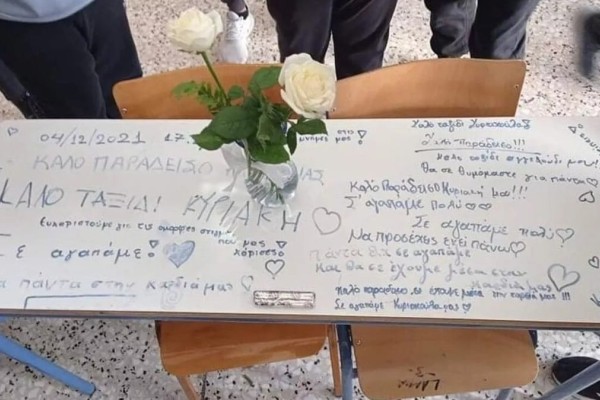 04/12/2021
ΚΑΛΟ ΠΑΡΑΔΕΙΣΟ
ΚΑΛΟ ΤΑΞΙΔΙ ΚΥΡΙΑΚΗ
Ευχαριστούμε για τις όμορφες στιγμές
που μας
χάρισες
Σε αγαπάμε
πάντα στην καρδιά μας
Καλό ταξίδι
Καλό ταξίδι αγγελούδι μου!
Θα σε θυμόμαστε για πάντα
Καλό Παράδεισο Κυριακή μου!!!
Σ' αγαπάμε πολύ
Σε αγαπάμε πολύ
Να προσέχεις εκεί πάνω
Πάντα θα σε αγαπάμε
και θα σε έχουμε μέσα στην
καρδιά μας
Καλό παράδεισο σε έχουμε μέσα την καρδιά μας!!!
Σε αγαπάμε Κυριακούλα μας